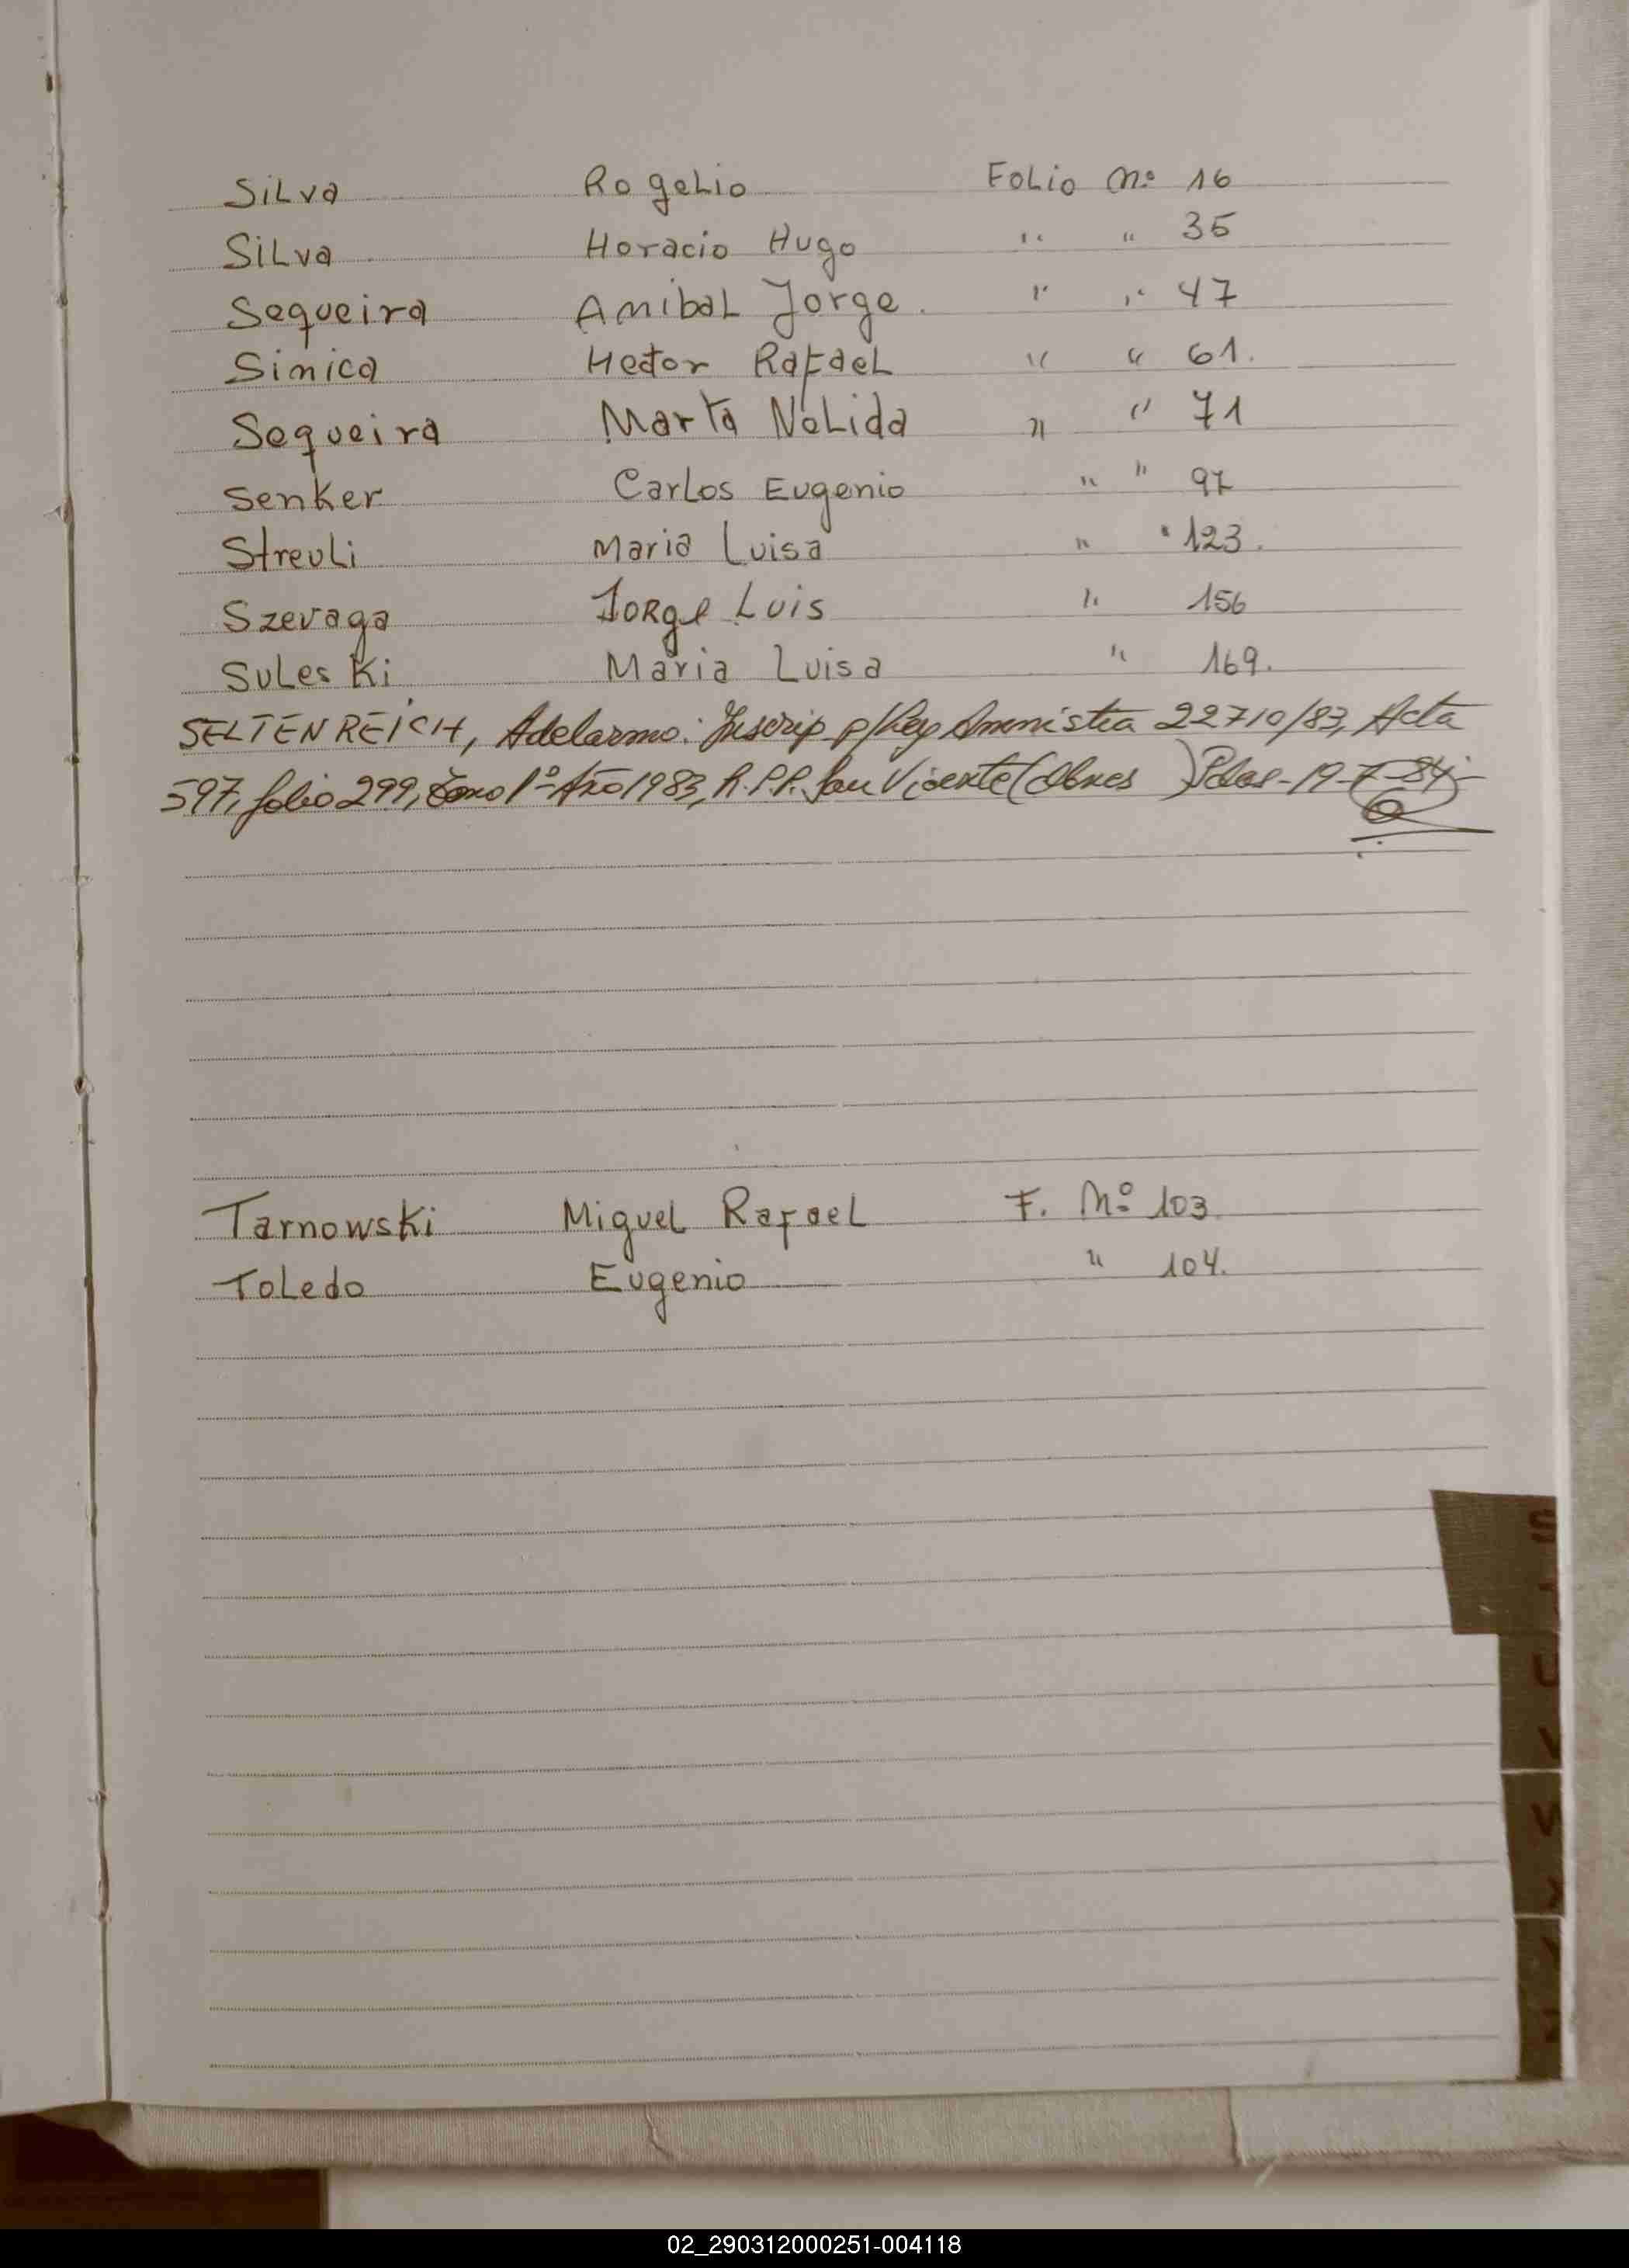 Silva Rogelio Folio Nº 16
Silva Horacio Hugo " " 35
Sequeira Anibal Jorge. " " 47
Sinica Hector Rafael " " 61.
Sequeira Marta Nelida " " 71
Senker Carlos Eugenio " " 97
Streuli Maria Luisa " " 123.
Szevaga Jorge Luis " 156
Suleski Maria Luisa " 169.
SELTENREICH, Adelarmo: Inscrip p/Ley Amnistia 22710/83, Acta
597, folio 299, tomo 1º Año 1983, R.P.P. San Vicente ( ) Pdas - 19-7-84-
Tarnowski Miguel Rafael F. Nº 103
Toledo Eugenio " 104.
02_290312000251-004118